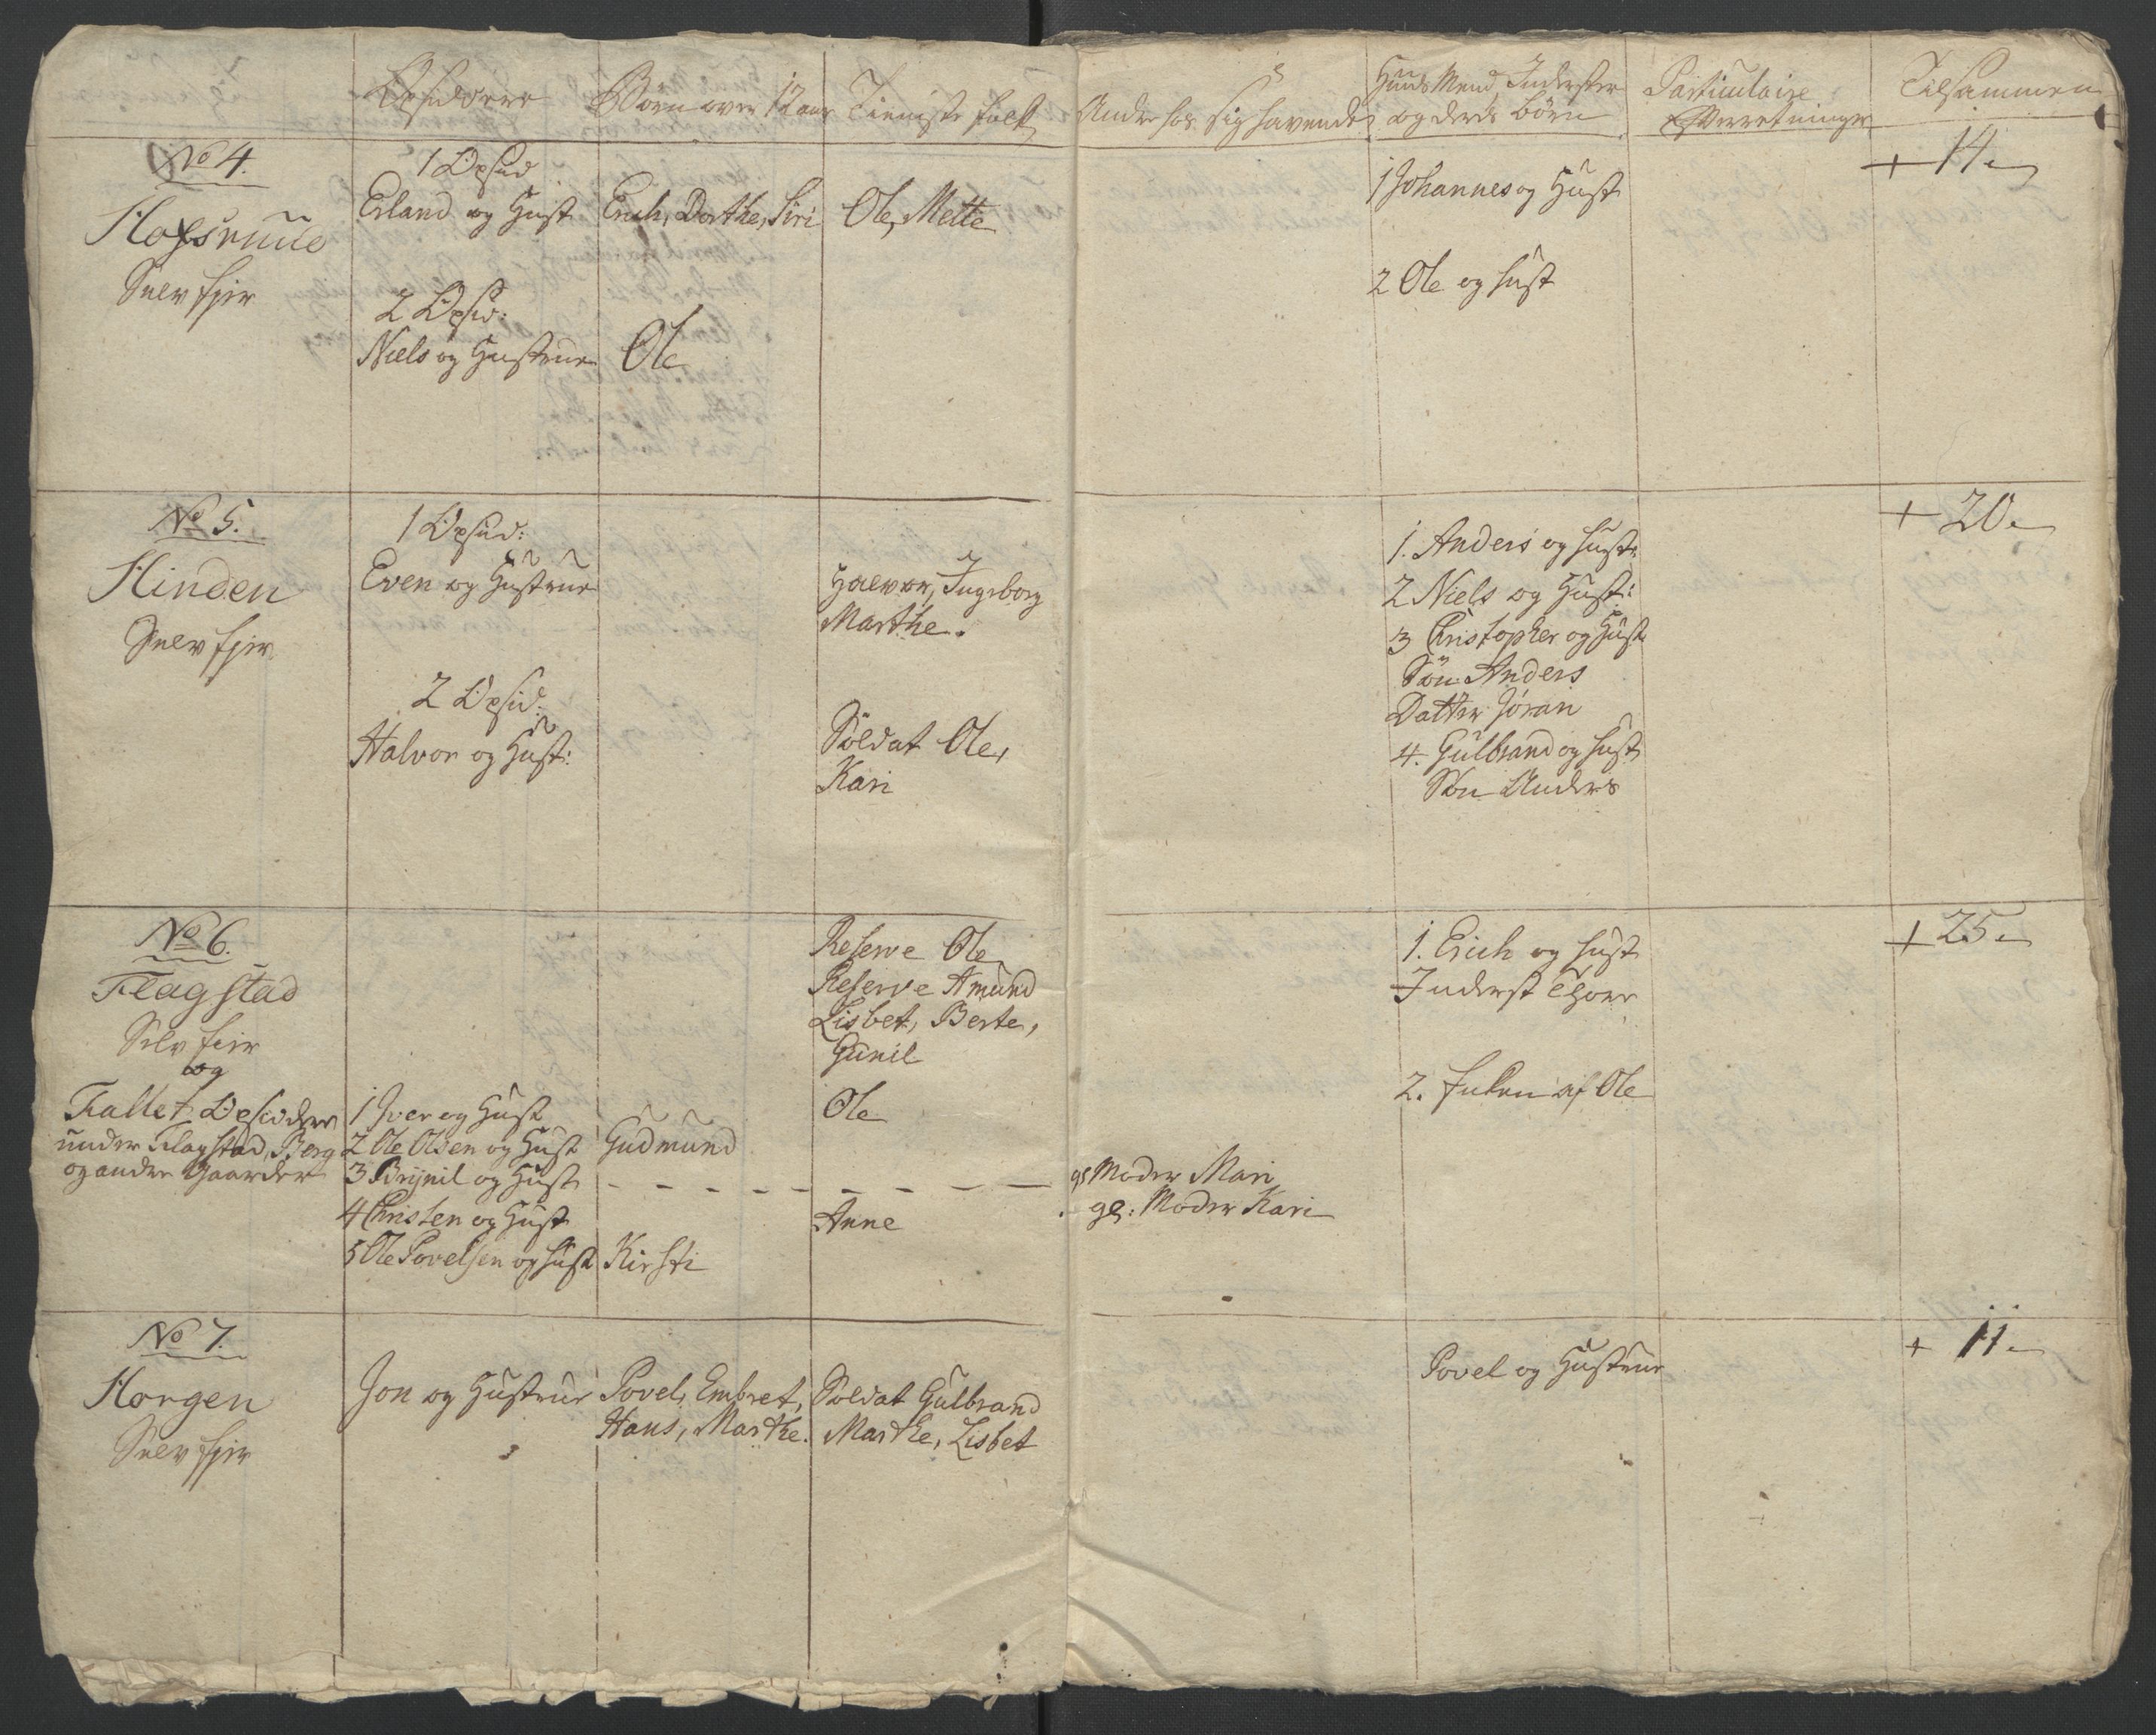 Opsidere
Börn over 12 aar
Tieniste folk
Andre hos sig havende
Huus Mend, Inderster
og deres Börn
Particulaire
Tilsammen
No 4.
Hofsruud
Selv Eier
1 Opsid
Erland og Hust
Erich, Dorthe, Siri
Ole, Mette
1 Johannes og Hust
+ 14.
2 Opsid:
Niels og Hustrue
Ole
2 Ole og Hust
No 5.
Hinden
Selv Eier
1 Opsid:
Even og Hustrue
Halvor, Ingeborg
Marthe.
2 Opsid:
Halvor og Hust:
Soldat Ole,
Kari
1. Anders og Hust:
2 Niels og Hust:
3 Christopher og Hust
Sön Anders
Datter Jöran
4. Gulbrand og Hust
Sön Anders
+ 20.
No 6.
Flagstad
Selv Eier
og
Fallet Opsidere
under Flagstad, Berg
og andre Gaarder
Reserve Ole
Reserve Amund
Lisbet, Berte,
Gunil
1 Iver og Hust
Ole
2 Ole Olsen og Hust
Gudmund
3 Brynil og Hust
gl Moder Mari
4 Christen og Hust
Anne
gl: Moder Kari
5 Ole Povelsen og Hust
Kirsti
1. Erich og Hust
Inderst Thore
2. Enken af Ole
+ 25.
No 7.
Horgen
Selv Eier
Jon og Hustrue
Povel, Embret,
Hans, Marthe.
Soldat Gulbrand
Marthe, Lisbet
Povel og Hustrue
+ 11.